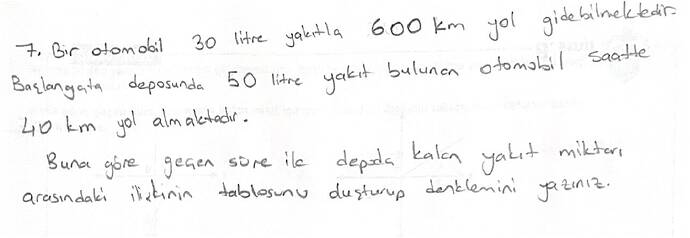 7. Bir otomobil 30 litre yakıtla 600 km yol gidebilmektedir.
Başlangıçta deposunda 50 litre yakıt bulunan otomobil saatte
40 km yol almaktadır.
Buna göre geçen süre ile depoda kalan yakıt miktarı
arasındaki ilişkinin tablosunu oluşturup denklemini yazınız.